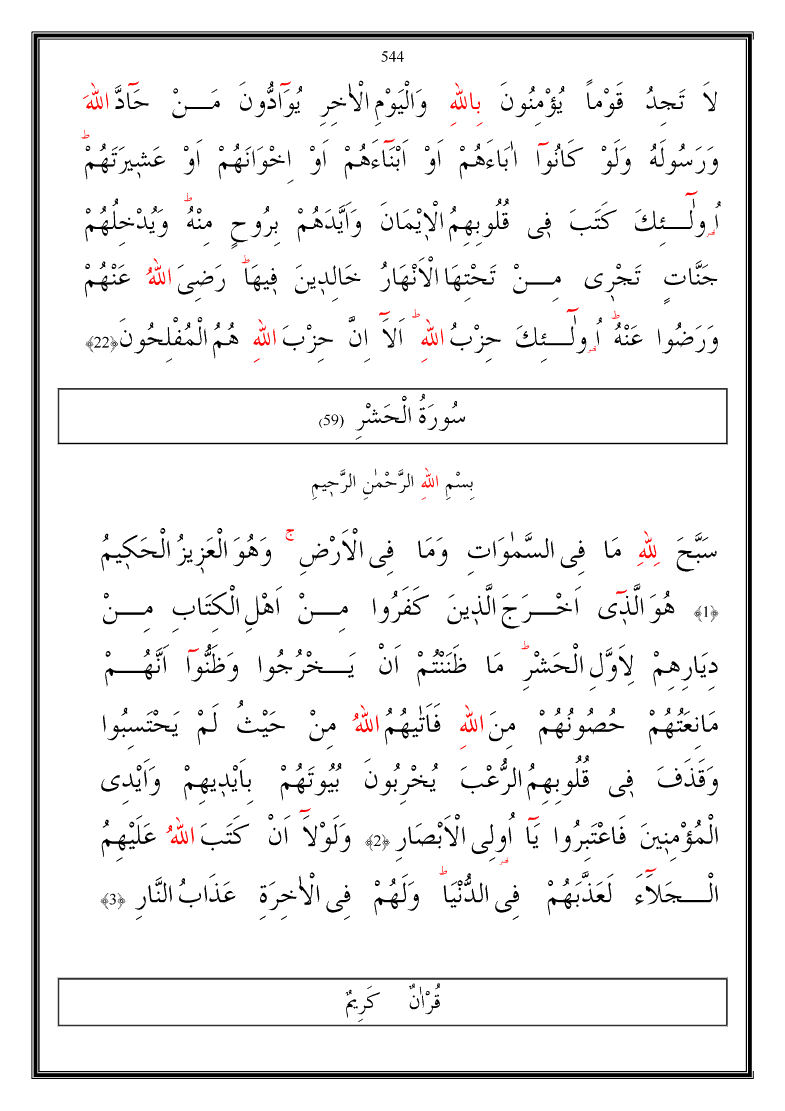 544
لاَ تَجِدُ قَوْماً يُؤْمِنُونَ بِاللهِ وَالْيَوْمِ الْاٰخِرِ يُوَآدُّونَ مَـــنْ حَآدَّ اللهَ
وَرَسُولَهُ وَلَوْ كَانُوآ اٰبَاءَهُمْ اَوْ اَبْنَآءَهُمْ اَوْ اِخْوَانَهُمْ اَوْ عَشٖيرَتَهُمْۜ
اُو۬لٰٓـــئِكَ كَتَبَ فٖى قُلُوبِهِمُ الْاٖيْمَانَ وَاَيَّدَهُمْ بِرُوحٍ مِنْهُۜ وَيُدْخِلُهُمْ
جَنَّاتٍ تَجْرٖى مِـــنْ تَحْتِهَا الْاَنْهَارُ خَالِدٖينَ فٖيهَاۜ رَضِىَ اللهُ عَنْهُمْ
وَرَضُوا عَنْهُۜ اُو۬لٰٓـــئِكَ حِزْبُ اللهِۜ اَلآَ اِنَّ حِزْبَ اللهِ هُمُ الْمُفْلِحُونَ ﴿22﴾
سُورَةُ الْحَشْرِ (59)
بِسْمِ اللهِ الرَّحْمٰنِ الرَّحٖيمِ
سَبَّحَ لِلّٰهِ مَا فِى السَّمٰوَاتِ وَمَا فِى الْاَرْضِۚ وَهُوَ الْعَزٖيزُ الْحَكٖيمُ
﴿1﴾ هُوَ الَّذٖٓى اَخْـــرَجَ الَّذٖينَ كَفَرُوا مِـــنْ اَهْلِ الْكِتَابِ مِـــنْ
دِيَارِهِمْ لِاَوَّلِ الْحَشْرِۜ مَا ظَنَنْتُمْ اَنْ يَـــخْرُجُوا وَظَنُّوآ اَنَّهُـــمْ
مَانِعَتُهُمْ حُصُونُهُمْ مِنَ اللهِ فَاَتٰيهُمُ اللهُ مِنْ حَيْثُ لَمْ يَحْتَسِبُوا
وَقَذَفَ فٖى قُلُوبِهِمُ الرُّعْبَ يُخْرِبُونَ بُيُوتَهُمْ بِاَيْدٖيهِمْ وَاَيْدِى
الْمُؤْمِنٖينَ فَاعْتَبِرُوا يَآ اُو۬لِى الْاَبْصَارِ ﴿2﴾ وَلَوْلآَ اَنْ كَتَبَ اللهُ عَلَيْهِمُ
الْـــجَلآَءَ لَعَذَّبَهُمْ فِى الدُّنْيَاۜ وَلَهُمْ فِى الْاٰخِرَةِ عَذَابُ النَّارِ ﴿3﴾
قُرْاٰنٌ كَرِيمٌ